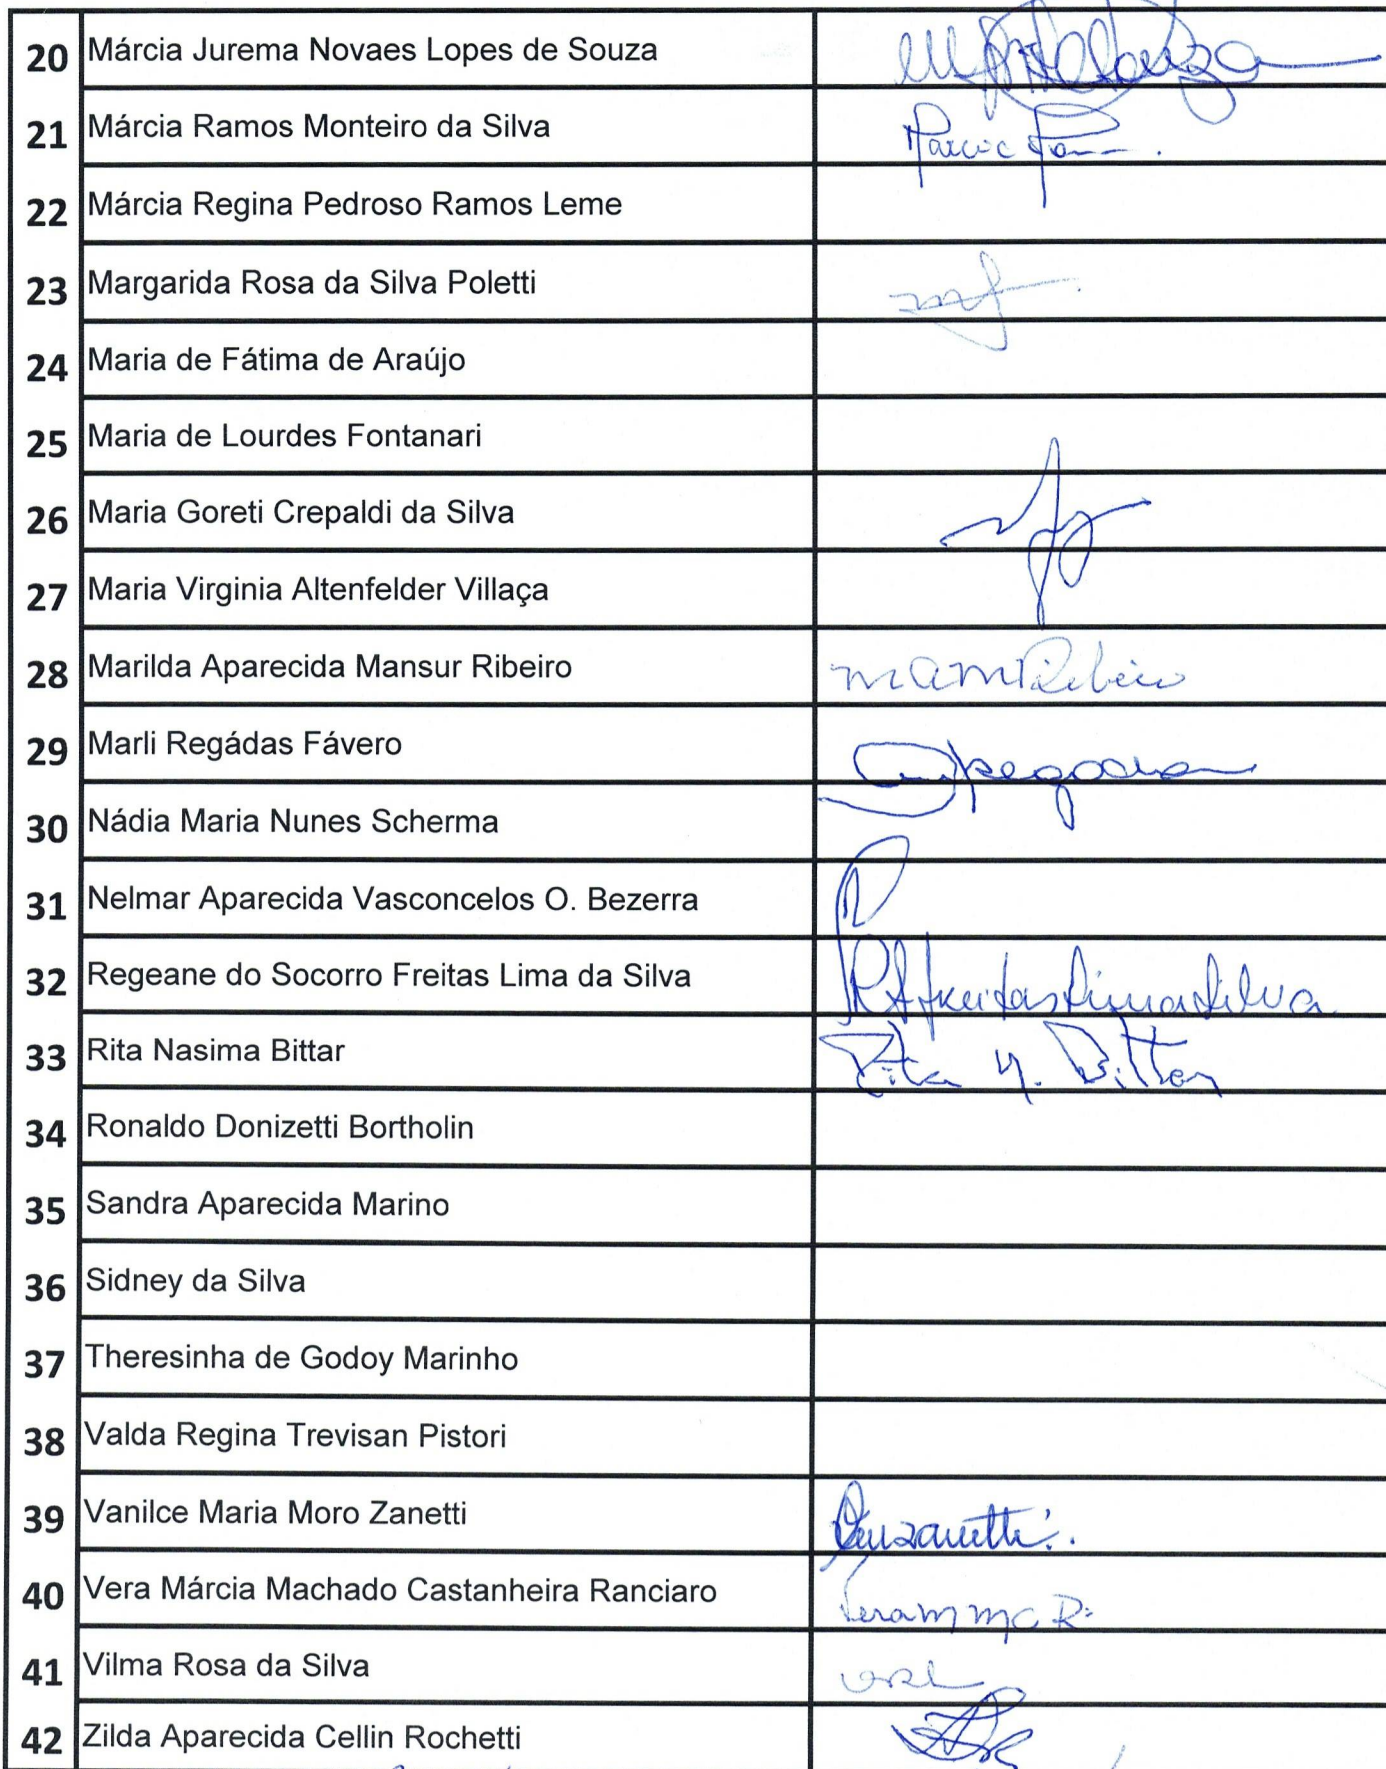 20 Márcia Jurema Novaes Lopes de Souza
21 Márcia Ramos Monteiro da Silva
22 Márcia Regina Pedroso Ramos Leme
23 Margarida Rosa da Silva Poletti
24 Maria de Fátima de Araújo
25 Maria de Lourdes Fontanari
26 Maria Goreti Crepaldi da Silva
27 Maria Virginia Altenfelder Villaça
28 Marilda Aparecida Mansur Ribeiro MAMRibeiro
29 Marli Regádas Fávero
30 Nádia Maria Nunes Scherma
31 Nelmar Aparecida Vasconcelos O. Bezerra
32 Regeane do Socorro Freitas Lima da Silva
33 Rita Nasima Bittar Rita N. Bittar
34 Ronaldo Donizetti Bortholin
35 Sandra Aparecida Marino
36 Sidney da Silva
37 Theresinha de Godoy Marinho
38 Valda Regina Trevisan Pistori
39 Vanilce Maria Moro Zanetti
40 Vera Márcia Machado Castanheira Ranciaro
41 Vilma Rosa da Silva
42 Zilda Aparecida Cellin Rochetti